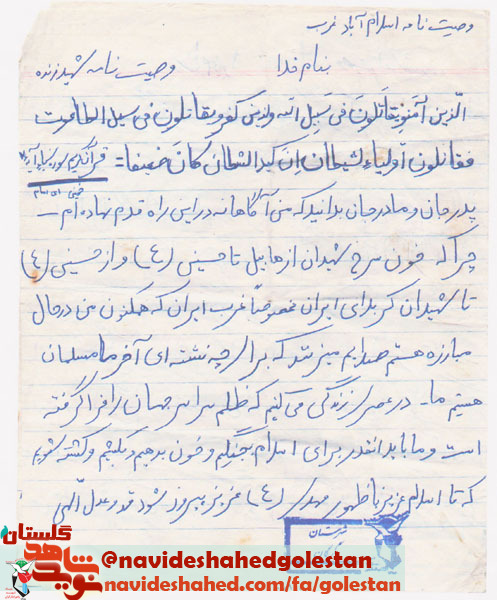 وصیت نامه اسلام آباد غرب
بنام خدا
وصیت نامه شهید زنده
الذین آمنو یقاتلون فی سبیل الله ولذین کفرو یقاتلون فی سبیل الطاغوت
فقاتلون اولیاء لشیطان إن کید الشیطان کان ضعیفا = قرآن کریم سوره نساء آیه
پدر جان و مادر جان بدانید که من آگاهانه در این راه قدم نهاده ام –
چرا که خون سرخ شهیدان از هابیل تا حسین (ع) و از حسین (ع)
تا شهیدان کربلای ایران مخصوصاً غرب ایران که هم اکنون من در حال
مبارزه هستم صدایم میزنند که برای چه نشسته ای آخر ما مسلمان
هستیم ما – در عصری زندگی می کنیم که ظلم سراسر جهان را فرا گرفته
است و ما باید انقدر برای اسلام بجنگیم و خون بدهیم و بکشیم و کشته شویم
که تا اسلام عزیز تا ظهور مهدی (ع) عزیز پیروز شود و عدل الهی
نوید شاهد گلستان
@navideshahedgolestan
navideshahed.com/fa/golestan